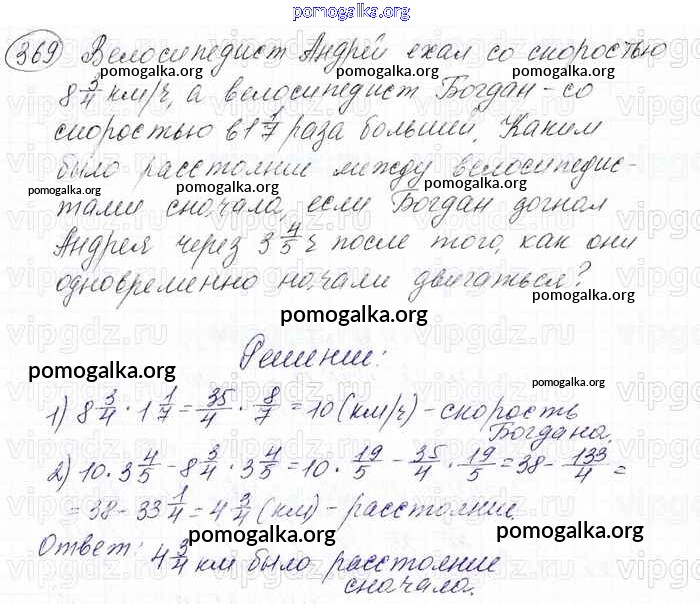 pomogalka.org
369 Велосипедист Андрей ехал со скоростью
pomogalka.org pomogalka.org
8 3/4 км/ч, а велосипедист Богдан - со
скоростью в 1 1/7 раза большей. Каким
было расстояние между велосипедис-
pomogalka.org pomogalka.org pomogalka.org
тами сначала, если Богдан догнал
Андрея через 3 4/5 ч после того, как они
одновременно начали двигаться?
pomogalka.org
pomogalka.org
Решение:
pomogalka.org
pomogalka.org
1) 8 3/4 · 1 1/7 = 35/4 · 8/7 = 10 (км/ч) - скорость
Богдана.
2) 10 · 3 4/5 - 8 3/4 · 3 4/5 = 10 · 19/5 - 35/4 · 19/5 = 38 - 133/4 =
= 38 - 33 1/4 = 4 3/4 (км) - расстояние.
pomogalka.org pomogalka.org
Ответ: 4 3/4 км было расстояние
сначала.
pomogalka.org
vipgdz.ru